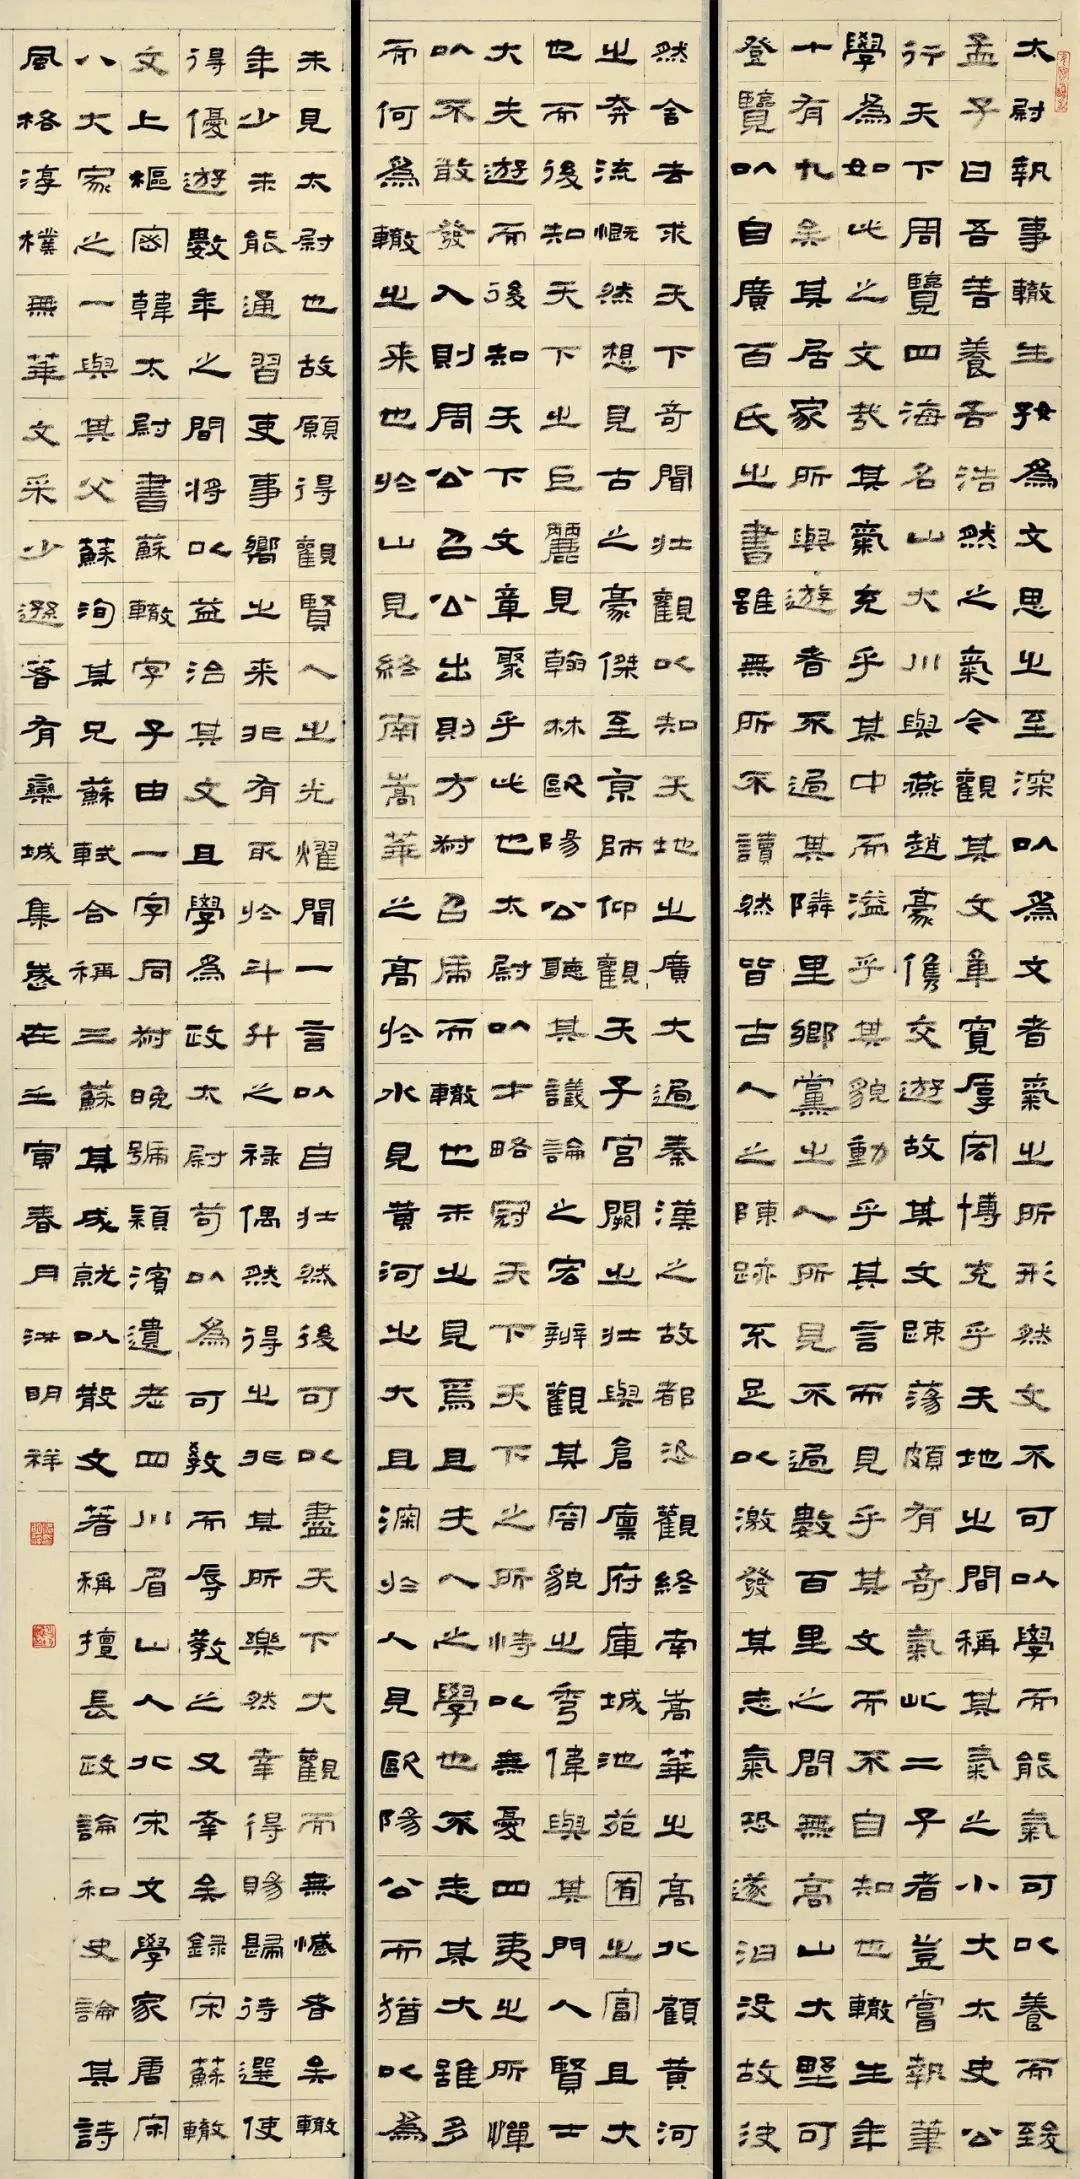 太尉執事轍生好為文思之至深以為文者氣之所形然文不可以學而能氣可以養而致
孟子曰吾善養吾浩然之氣今觀其文章寬厚宏博充乎天地之間稱其氣之小大太史公
行天下周覽四海名山大川與燕趙豪儁交遊故其文疎蕩頗有奇氣此二子者豈嘗執筆
學為如此之文哉其氣充乎其中而溢乎其貌動乎其言而見乎其文而不自知也轍生年
十有九矣其居家所與遊者不過其隣里鄉黨之人所見不過數百里之間無高山大野可
登覽以自廣百氏之書雖無所不讀然皆古人之陳跡不足以激發其志氣恐遂汩沒故決
然舍去求天下奇聞壯觀以知天地之廣大過秦漢之故都恣觀終南嵩華之高北顧黃河
之奔流慨然想見古之豪傑至京師仰觀天子宮闕之壯與倉廩府庫城池苑囿之富且大
也而後知天下之巨麗見翰林歐陽公聽其議論之宏辯觀其容貌之秀偉與其門人賢士
大夫遊而後知天下文章聚乎此也太尉以才略冠天下天下之所恃以無憂四夷之所憚
以不敢發入則周公召公出則方叔召虎而轍也未之見焉且夫人之學也不志其大雖多
而何為轍之來也於山見終南嵩華之高於水見黃河之大且深於人見歐陽公而猶以為
未見太尉也故願得觀賢人之光耀聞一言以自壯然後可以盡天下大觀而無憾者矣轍
年少未能通習吏事嚮之來非有取於斗升之祿偶然得之非其所樂然幸得賜歸待選使
得優遊數年之間將以益治其文且學為政太尉苟以為可教而辱教之又幸矣錄宋蘇轍
文上樞密韓太尉書蘇轍字子由一字同叔晚號潁濱遺老四川眉山人北宋文學家唐宋
八大家之一與其父蘇洵其兄蘇軾合稱三蘇其成就以散文著稱擅長政論和史論其詩
風格淳樸無華文采少遜著有欒城集歲在壬寅春月洪明祥